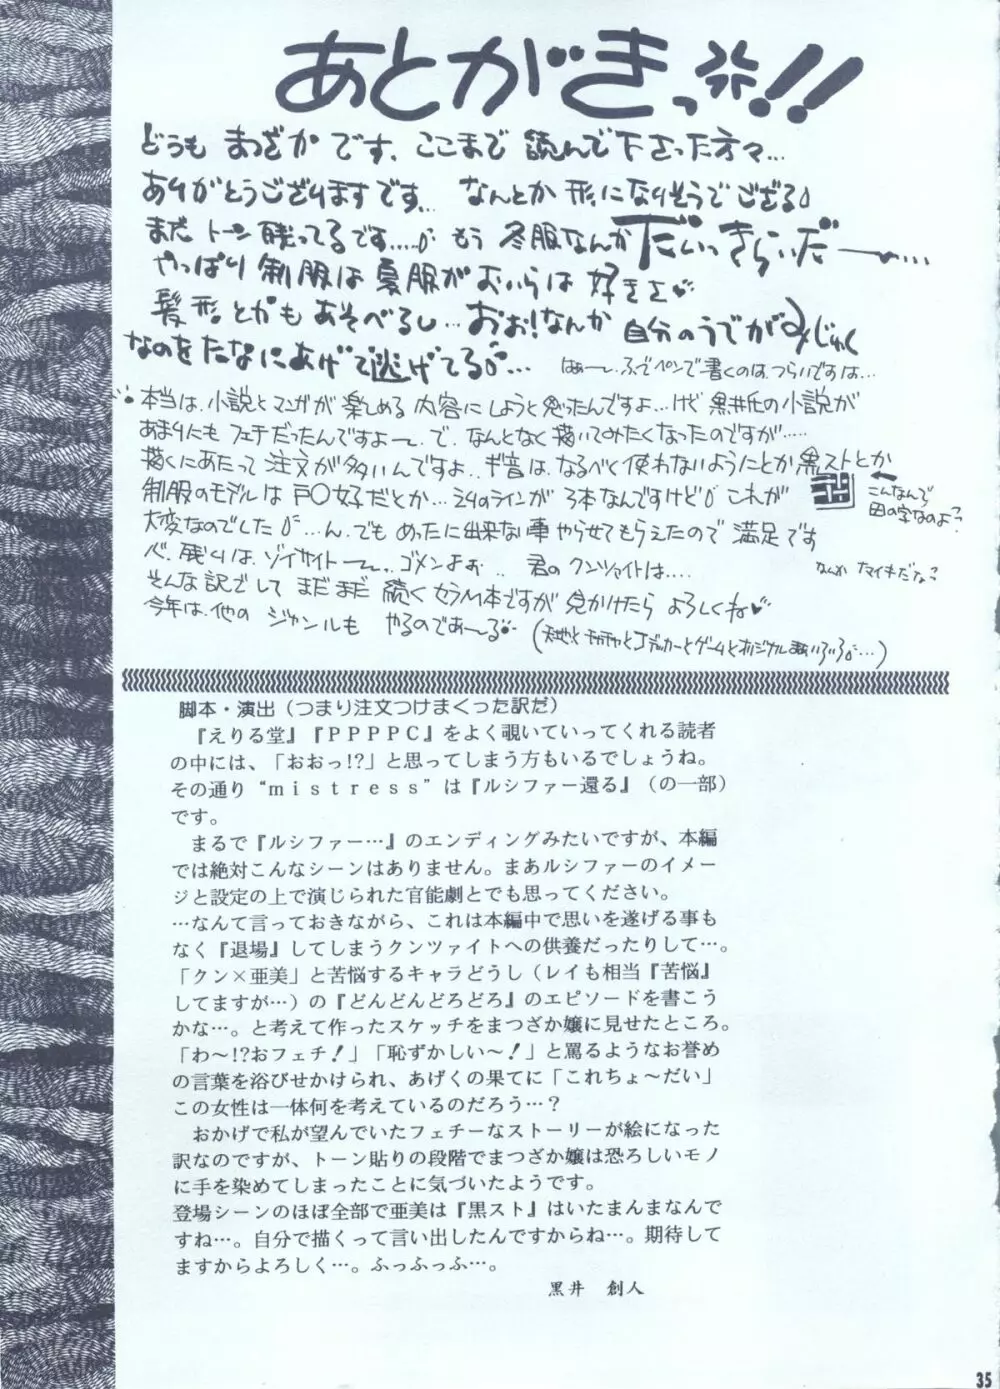 あとがきっ!!
どうも まつざか です、ここまで 読んで下さった方々…
ありがとうございますです… なんとか 形になりそうでござる
まだ トーン 残ってるです…… もう 冬服なんか だいっきらいだー……
やっぱり 制服は 夏服が おいらは 好きさ
髪形とかも あそべるし… おお!なんか 自分のうでがみじゅく
なのを たなにあげて 逃げてる…
はぁー、ふでペンで書くのは、つらいですは…
本当は、小説とマンガが 楽しめる 内容にしようと思ったんですよ…けど 黒井氏の小説が
あまりにも フェチだったんですよー、で、なんとなく 描いてみたくなったのですが……
描くにあたって 注文が多いんですよ、ギ音は、なるべく使わないようにとか 黒ストとか
制服のモデルは 戸〇好だとか… えりのラインが 3本なんですけど これが
こんなんで
田の字なのよ
大変なのでした …ん、でも めったに出来ない事 やらせてもらえたので 満足です
心残りは、ゾイサイトー、ゴメンよぉ… 君の クンツァイトは……
なんか ナマイキだな
そんな訳でして まだまだ 続く セラM本ですが 見かけたら よろしくね
今年は、他の ジャンルも やるのであーる
脚本・演出(つまり注文つけまくった訳だ)
『えりる堂』『PPPPC』をよく覗いていってくれる読者
の中には、「おおっ!?」と思ってしまう方もいるでしょうね。
その通り“mistress”は『ルシファー還る』(の一部)
です。
まるで『ルシファー…』のエンディングみたいですが、本編
では絶対こんなシーンはありません。まあルシファーのイメー
ジと設定の上で演じられた官能劇とでも思ってください。
…なんて言っておきながら、これは本編中で思いを遂げる事も
なく『退場』してしまうクンツァイトへの供養だったりして…。
「クン×亜美」と苦悩するキャラどうし(レイも相当『苦悩』
してますが…)の『どんどんどろどろ』のエピソードを書こう
かな…。と考えて作ったスケッチをまつざか嬢に見せたところ。
「わ〜!?おフェチ!」「恥ずかしい〜!」と罵るようなお誉め
の言葉を浴びせかけられ、あげくの果てに「これちょ〜だい」
この女性は一体何を考えているのだろう…?
おかげで私が望んでいたフェチーなストーリーが絵になった
訳なのですが、トーン貼りの段階でまつざか嬢は恐ろしいモノ
に手を染めてしまったことに気づいたようです。
登場シーンのほぼ全部で亜美は『黒スト』はいたまんまなんで
すね…。自分で描くって言い出したんですからね…。期待して
ますからよろしく…。ふっふっふ…。
黒井 創人
35